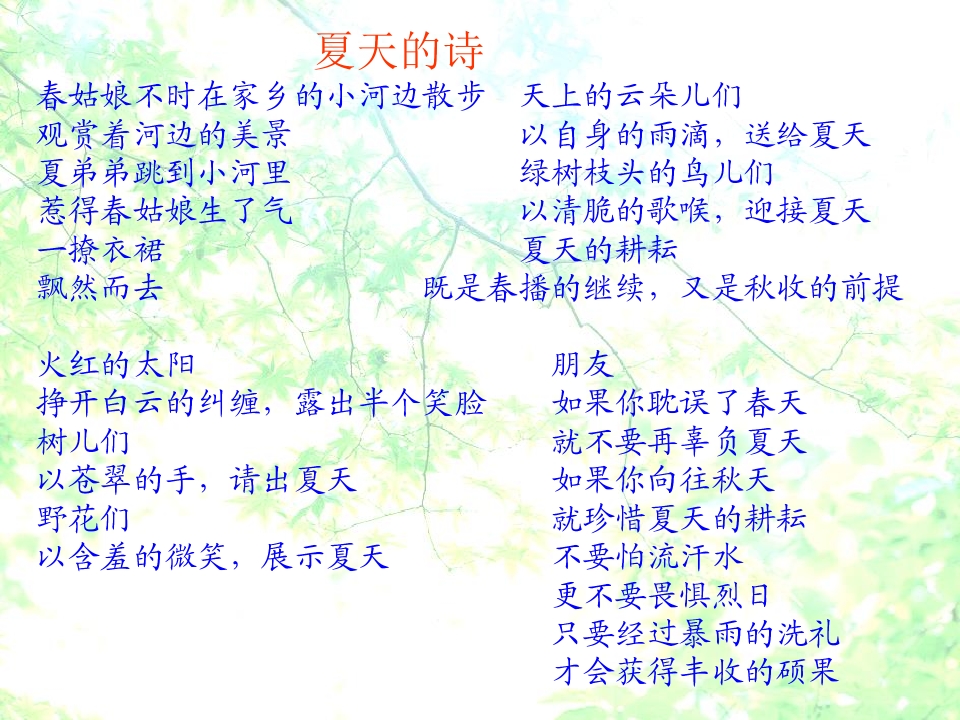 夏天的诗
春姑娘不时在家乡的小河边散步
观赏着河边的美景
夏弟弟跳到小河里
惹得春姑娘生了气
一撩衣裙
飘然而去
火红的太阳
挣开白云的纠缠，露出半个笑脸
树儿们
以苍翠的手，请出夏天
野花们
以含羞的微笑，展示夏天
天上的云朵儿们
以自身的雨滴，送给夏天
绿树枝头的鸟儿们
以清脆的歌喉，迎接夏天
夏天的耕耘
既是春播的继续，又是秋收的前提
朋友
如果你耽误了春天
就不要再辜负夏天
如果你向往秋天
就珍惜夏天的耕耘
不要怕流汗水
更不要畏惧烈日
只要经过暴雨的洗礼
才会获得丰收的硕果